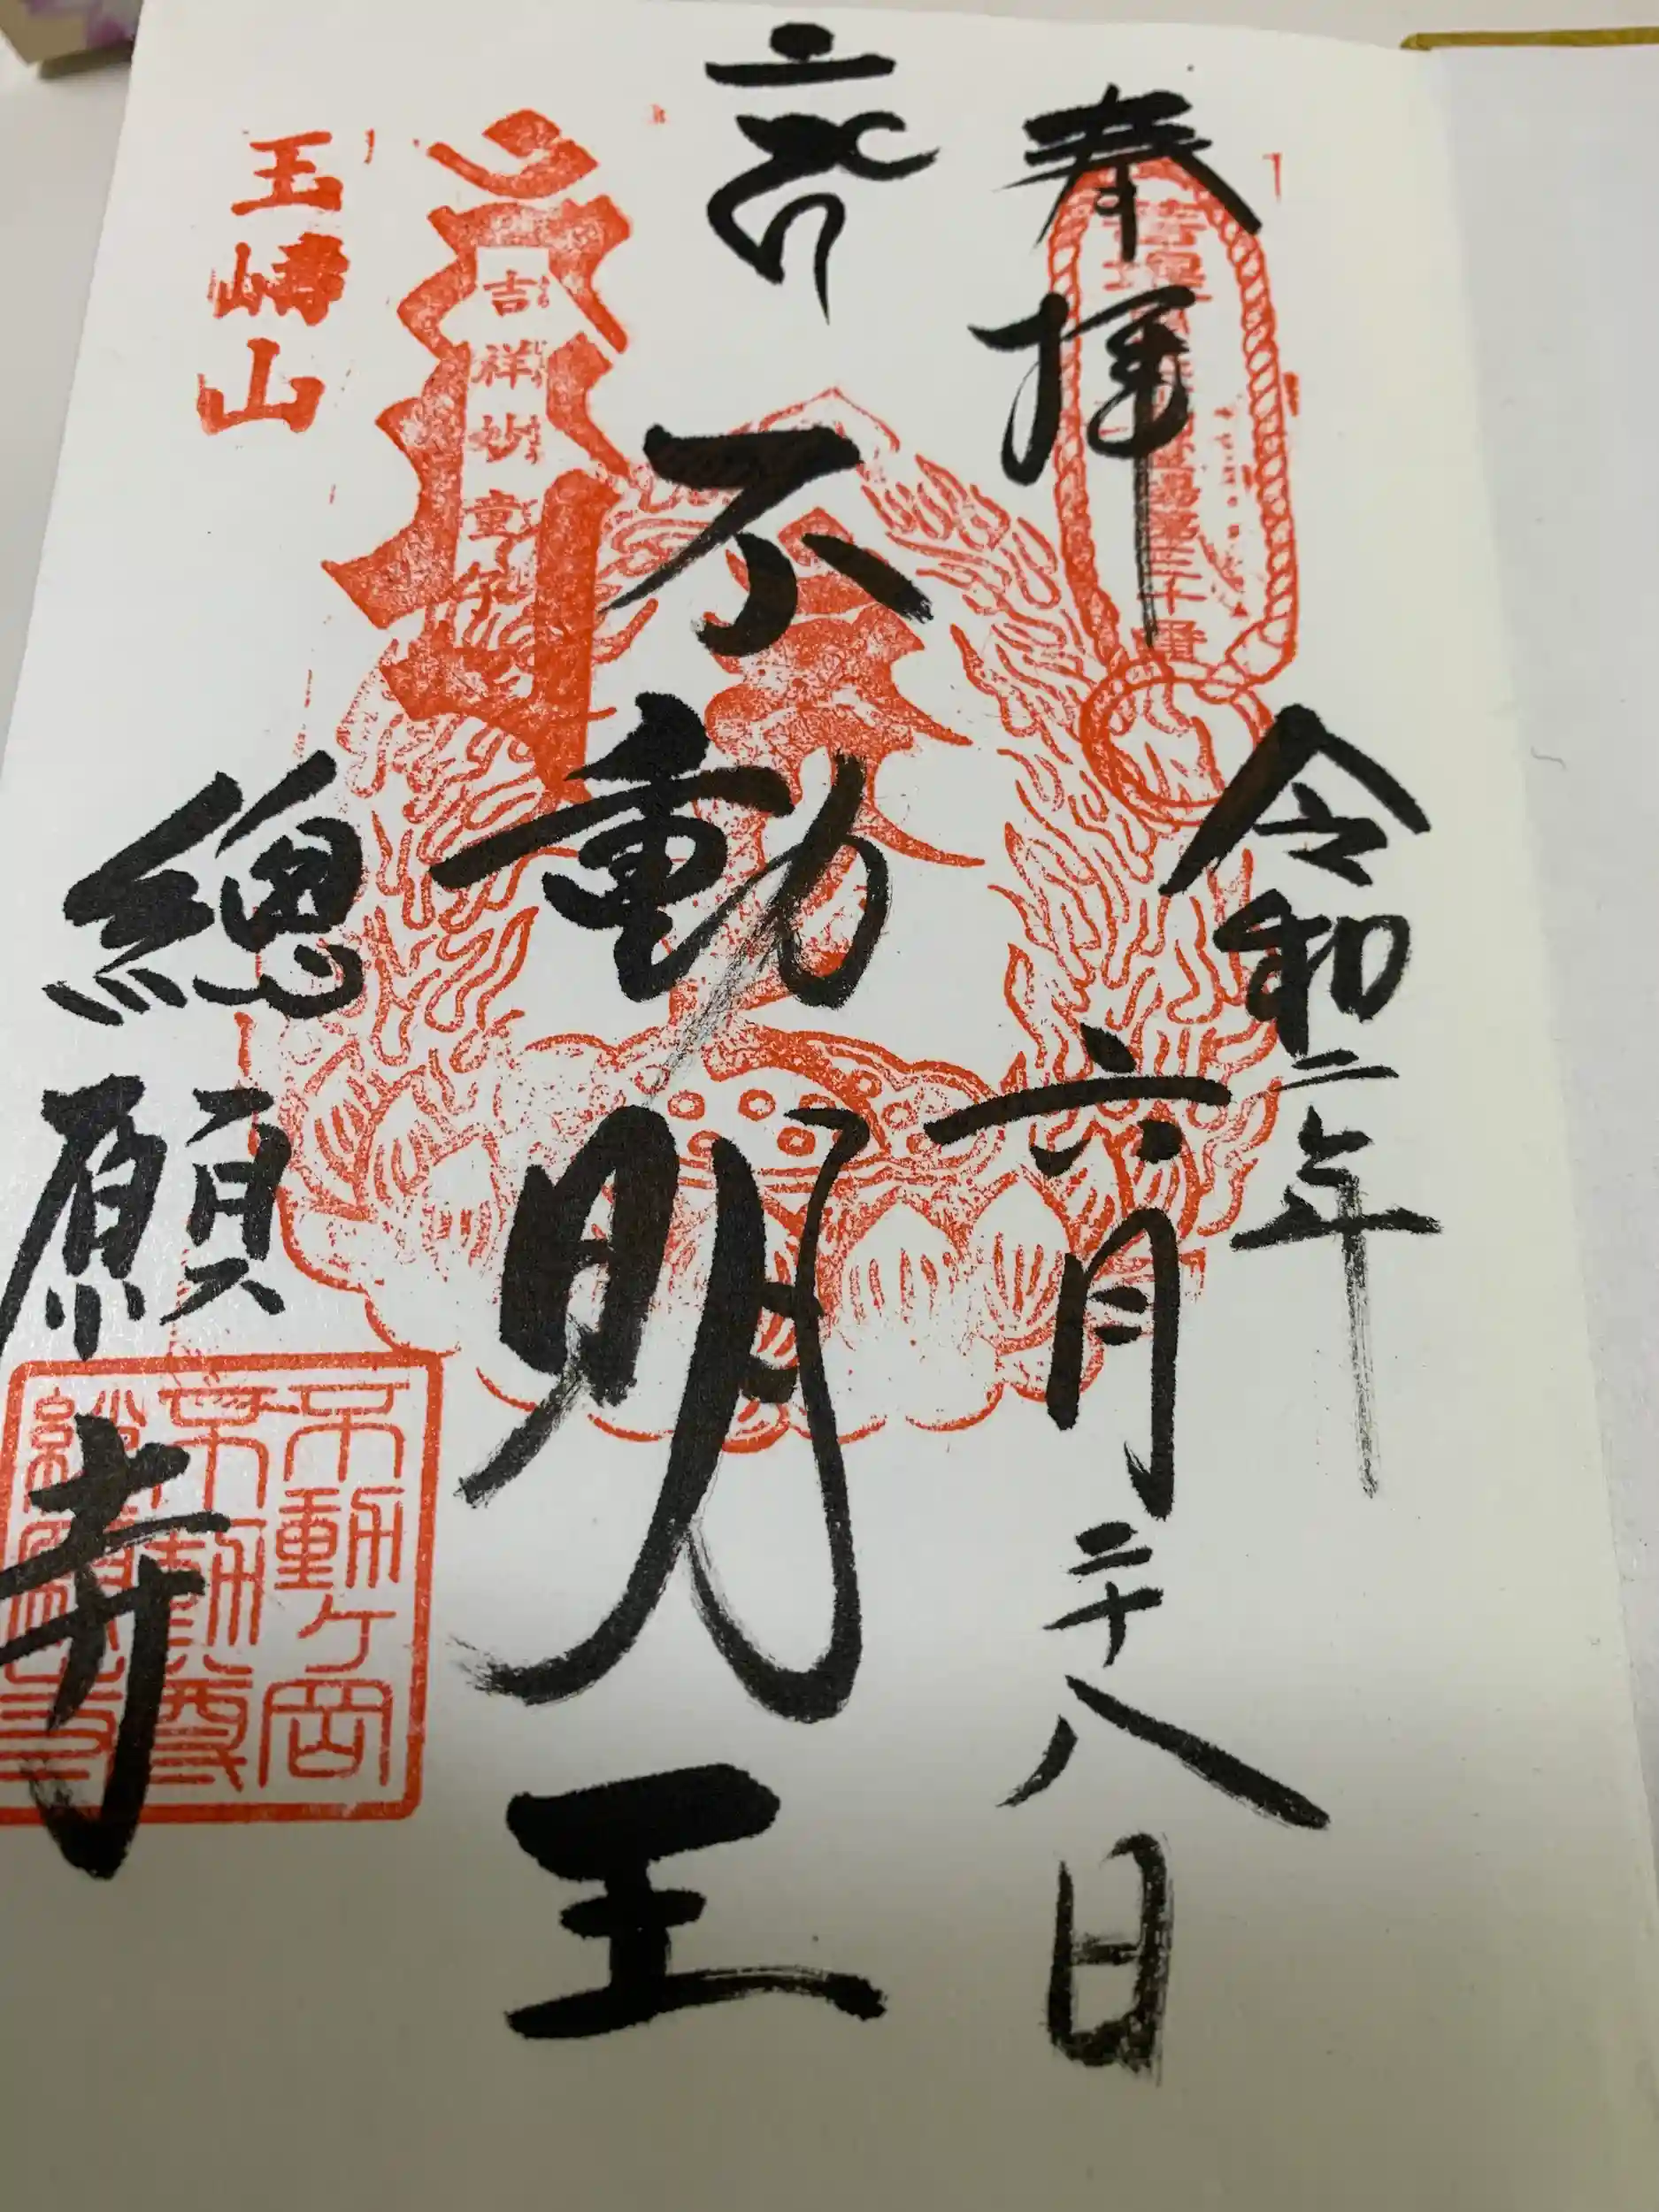 奉拝
令和二年
六月二十八日
不動明王
吉祥妙童子
玉嶹山
總願寺
不動ヶ岡
不動尊
總願寺